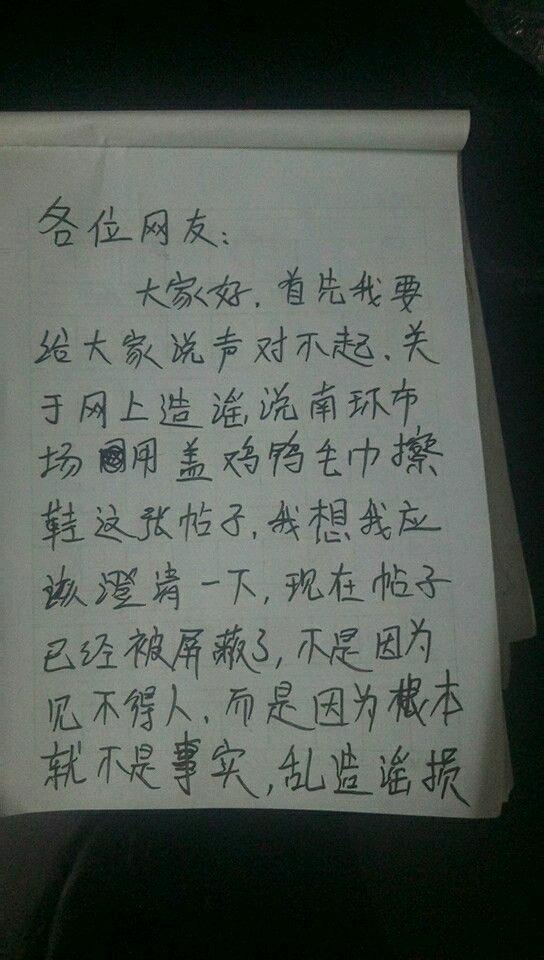 各位网友：
大家好，首先我要
给大家说声对不起，关
于网上造谣，说南环市
场用盖鸡鸭毛巾擦
鞋这张帖子，我想我应
该澄清一下，现在帖子
已经被屏蔽了，不是因为
见不得人，而是因为根本
就不是事实，乱造谣损